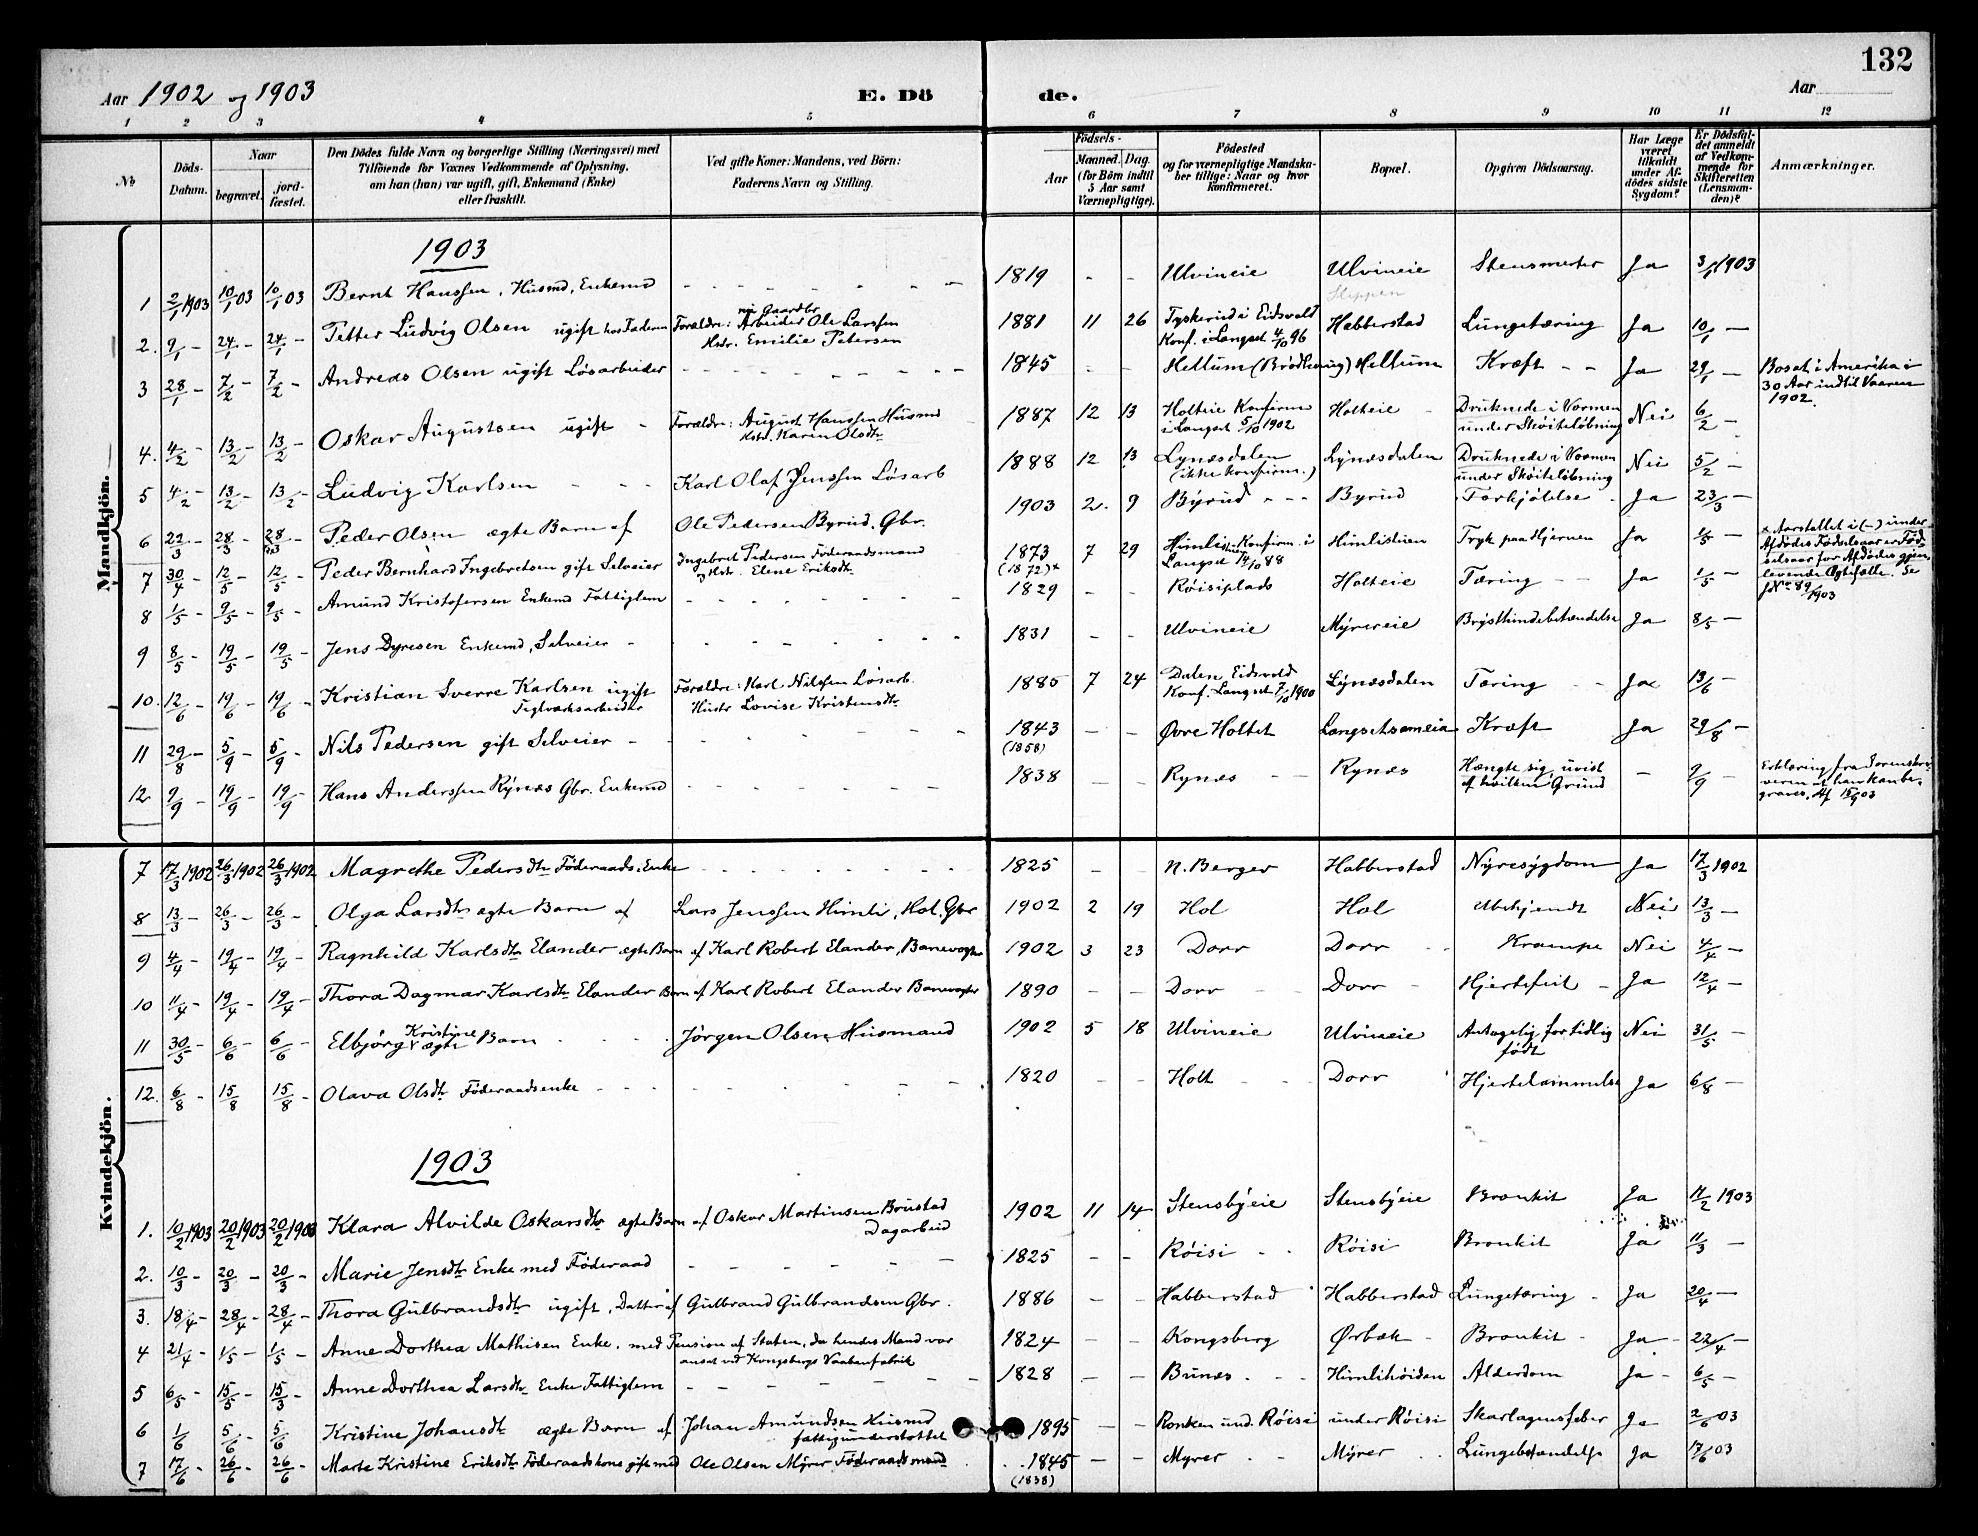 132
Aar 1902 og 1903 E. Dö de. Aar
1 2 3 4 5 6 7 8 9 10 11 12
№ Döds-Datum. Naar begravet. jordfæstet. Den Dödes fulde Navn og borgerlige Stilling (Næringsvei) med Tilföiende for Voxnes Vedkommende af Oplysning, om han (hun) var ugift, gift, Enkemand (Enke) eller fraskilt. Ved gifte Koner: Mandens, ved Börn: Faderens Navn og Stilling. Födsels- Aar Maaned. Dag. (for Börn indtil 5 Aar samt Værnepligtige). Födested og for værnepligtige Mandskaber tillige: Naar og hvor konfirmeret. Bopæl. Opgiven Dödsaarsag. Har Læge været tilkaldt under Afdödes sidste Sygdom? Er Dödsfaldet anmeldt af Vedkommende for Skifteretten (Lensmanden)? Anmærkninger.
Mandkjön.
1903
1 2/1 1903 10/1 03 10/1 03 Bernt Hanssen, Husmd, Enkemd - - 1819 - - Ulvineie Ulvineie Stensmerter Ja 3/1 1903
2. 9/1 - 24/1 - 24/1 - Petter Ludvig Olsen ugift hos Faderen Forældre: Arbeider Ole Larssen Hstr. Emilie Petersen 1881 11 26 Tyskerud i Eidsvold Konf. i Langset 4/10 96 Habberstad Lungetæring Ja 10/1 -
3 28/1 - 7/2 - 7/2 - Andreas Olsen ugift Løsarbeider - - 1845 - - Hellum (Brødhaug) Hellum Kræft - - Ja 29/1 - Bosat i Amerika i 30 Aar indtil Vaaren 1902.
4. 4/2 - 13/2 - 13/2 - Oskar Augustsen ugift - Forældre: August Hanssen Husmd Hstr. Karen Olsdtr 1887 12 13 Holteie Konfirm. i Langset 5/10 1902 Holteie Druknede i Vormen under Skøiteløbning Nei 6/2 -
5 4/2 - 13/2 - 13/2 - Ludvig Karlsen - - Karl Olaf Jenssen Løsarb 1888 12 13 Lynæsdalen (ikke konfirm.) Lynæsdalen Druknede i Vormen under Skøiteløbning Nei 5/2 -
6 22/3 - 28/3 - 28/3 - Peder Olsen ægte Barn af Ole Pedersen Byrud, Gbr. 1903 2. 9 Byrud - - - Byrud Forkjølelse Ja 23/3 -
7 30/4 - 12/5 - 12/5 - Peder Bernhard Ingebretsen gift Selveier Ingebret Pedersen Föderaadsmand og Hstr. Elene Eriksdtr 1873 (1872)x 7 29 Himlistuen Konfirm. i Langset 14/10 88 Himlistuen Tryk paa Hjernen Ja 1/5 - x Aarstallet i (-) under Afdødes Fødselsaar er Fødselsaar for Afdødes gjenlevende Ægtefælle. Se J.No 89/1903
8 1/5 - 9/5 - 9/5 - Amund Kristofersen Enkemd Fattiglem - - 1829 - - Røisiplads Holteie Tæring - - Ja 1/5 -
9 8/5 19/5 - 19/5 - Jens Dyresen Enkemd, Selveier - - 1831 - - Ulvineie Myrereie Brysthindebetændelse Ja 8/5 -
10. 12/6 - 19/6 - 19/6 - Kristian Sverre Karlsen ugift Teglværksarbeider Forældre: Karl Nilssen Løsarb. Hustr Lovise Kristensdtr 1885 7 24 Dalen, Eidsvold Konf. Langset 7/10 1900 Lynæsdalen Tæring - - Ja 13/6 -
11 29/8 - 5/9 - 5/9 - Nils Pedersen gift Selveier - - 1843 (1858) - - Øvre Holtet Langsetsameia Kræft Ja 29/8 -
12. 9/9 - 19/9 - 19/9 - Hans Anderssen Rynæs Gbr. Enkemd - - 1838 - - Rynæs - - Rynæs Hængte sig, uvist af hvilken Grund - 9/9 - Erklæring fra Sorenskriveren at han kan begraves. Af 15/9 03
Kvindekjön.
7 17/3 1902 26/3 1902 26/3 1902 Magrethe Pedersdtr Föderaads.Enke - - 1825 - - N. Berger Habberstad Nyresygdom Ja 17/3 1902
8 13/3 - 26/3 - 26/3 - Olga Larsdtr ægte Barn af Lars Jenssen Himli, Hol, Gbr 1902 2 19 Hol Hol Ubekjendt Nei 13/3 -
9 4/4 - 19/4 - 19/4 - Ragnhild Karlsdtr Elander ægte Barn af Karl Robert Elander, Banevogter 1902 3 23 Dorr Dorr Krampe Nei 4/4 -
10 11/4 - 19/4 - 19/4 - Thora Dagmar Karlsdtr Elander Barn af Karl Robert Elander Banevogter 1890 - - Dorr - Dorr - Hjertefeil - Ja 12/4 -
11 30/5 - 6/6 - 6/6 - Elbjørg Kristine ægte Barn Jørgen Olsen Husmand 1902 5 18 Ulvineie Ulvineie Antagelig for tidlig født Nei 31/5 -
12. 6/8 - 15/8 15/8 - Olava Olsdtr Föderaadsenke - - 1820 - - Holt - - Dorr Hjertelammelse Ja 6/8 -
1903
1. 10/2 1903 20/2 1903 20/2 1903 Klara Alvilde Oskarsdtr ægte Barn af Oskar Martinsen Brustad Dagarbeid 1902 11 14 Stensbyeie Stensbyeie Bronkit Ja 11/2 1903
2. 10/3 - 20/3 - 20/3 - Marie Jensdtr Enke med Föderaad - - 1825 - - Røisi - - Røisi Bronkit Ja 11/3 -
3. 18/4 - 28/4 - 28/4 - Thora Gulbrandsdtr ugift, Datter af Gulbrand Gulbrandsen Gbr. 1886 - - Habberstad Habberstad Lungetæring - Ja 20/4 -
4 21/4 - 1/5 - 1/5 - Anne Dorthea Mathisen Enke, med Pension af Staten, da hendes Mand var ansat ved Kongsbergs Vaabenfabrik 1824 - - Kongsberg Ørbæk - Bronkit - Ja - 22/4 -
5 6/5 - 15/5 - 15/5 - Anne Dorthea Larsdtr Enke Fattiglem - - 1828 - - Bunæs - - Himlihøiden Alderdom Ja - 6/5 -
6 1/6 5/6 - 5/6 Kristine Johansdtr ægte Barn af Johan Amundsen Husmd fattigunderstøttet 1895 - - Ronken und. Røisi under Røisi Skarlagensfeber Ja 2/6 03
7 17/6 - 26/6 - 26/6 - Marte Kristine Eriksdtr Föderaadskone gift med Ole Olsen Myrer Föderaadsmand 1845 (1838) - - Myrer - - Myrer Lungebetændelse Ja 17/6 03